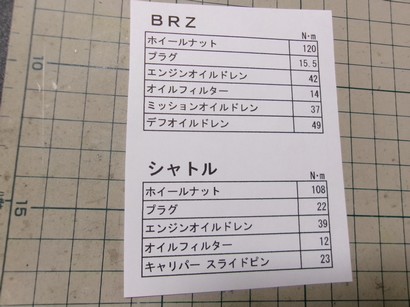 BRZ
N·m
ホイールナット 120
プラグ 15.5
エンジンオイルドレン 42
オイルフィルター 14
ミッションオイルドレン 37
デフオイルドレン 49
シャトル
N·m
ホイールナット 108
プラグ 22
エンジンオイルドレン 39
オイルフィルター 12
キャリパー スライドピン 23
10
15